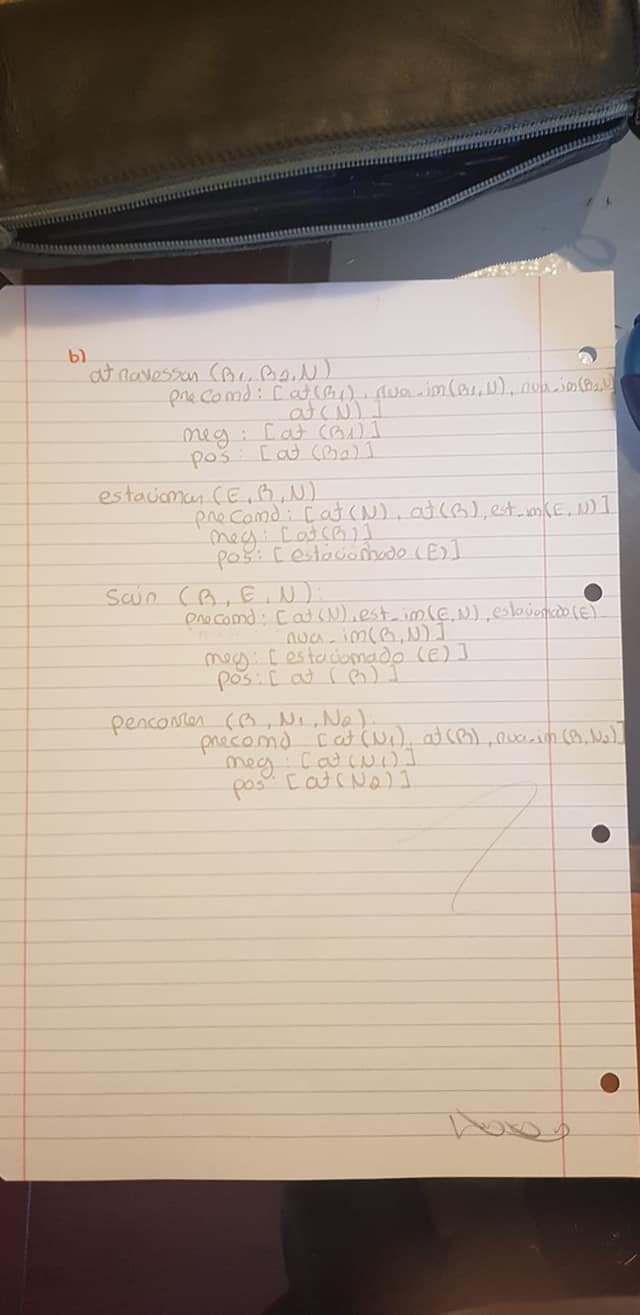 b)
atravessar (R1, R2, N)
precond: [at(R1), rua_in(R1,N), rua_in(R2,N)
at(N)]
neg: [at (R1)]
pos: [at (R2)]
estacionar (E, R, N)
precond: [at(N), at(R), est_in(E, N)]
neg: [at(R)]
pos: [estacionado (E)]
Sair (R, E, N):
precond: [at(N), est_in(E,N), estacionado(E)
rua_in(R,N)]
neg: [estacionado (E)]
pos: [at (R)]
percorrer (R, N1, N2)
precond [at(N1), at(R), rua_in (R,N2)]
neg: [at(N1)]
pos: [at(N2)]